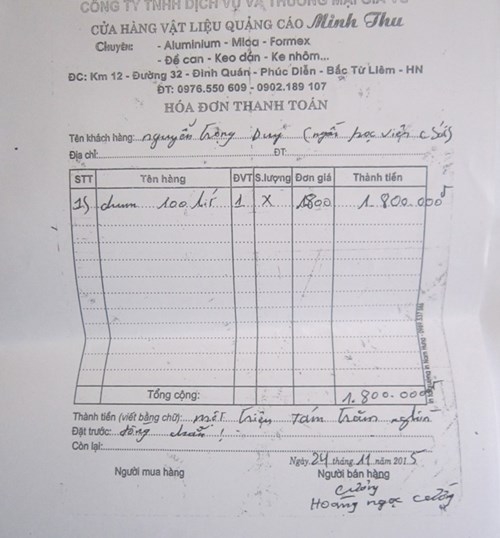 CÔNG TY TNHH DỊCH VỤ VÀ THƯƠNG MẠI GIA VŨ
CỬA HÀNG VẬT LIỆU QUẢNG CÁO Minh Thu
Chuyên: - Aluminium - Mica - Formex
- Đề can - Keo dán - Ke nhôm...
ĐC: Km 12 - Đường 32 - Đình Quán - Phúc Diễn - Bắc Từ Liêm - HN
ĐT: 0976.550 609 - 0902.189 107
HÓA ĐƠN THANH TOÁN
Tên khách hàng: nguyễn trọng Duy (ngân học viện CSÁS)
Địa chỉ: ĐT
STT Tên hàng ĐVT S.lượng Đơn giá Thành tiền
chum 100 lít 1 X 1800 1.800.000đ
Tổng cộng: 1.800.000đ
Thành tiền (viết bằng chữ): một triệu Tám trăm nghìn
Đặt trước: đồng chẵn!
Còn lại:
Ngày 24 tháng 11 năm 2015
Người mua hàng Người bán hàng
Cường
Hoàng ngọc cường